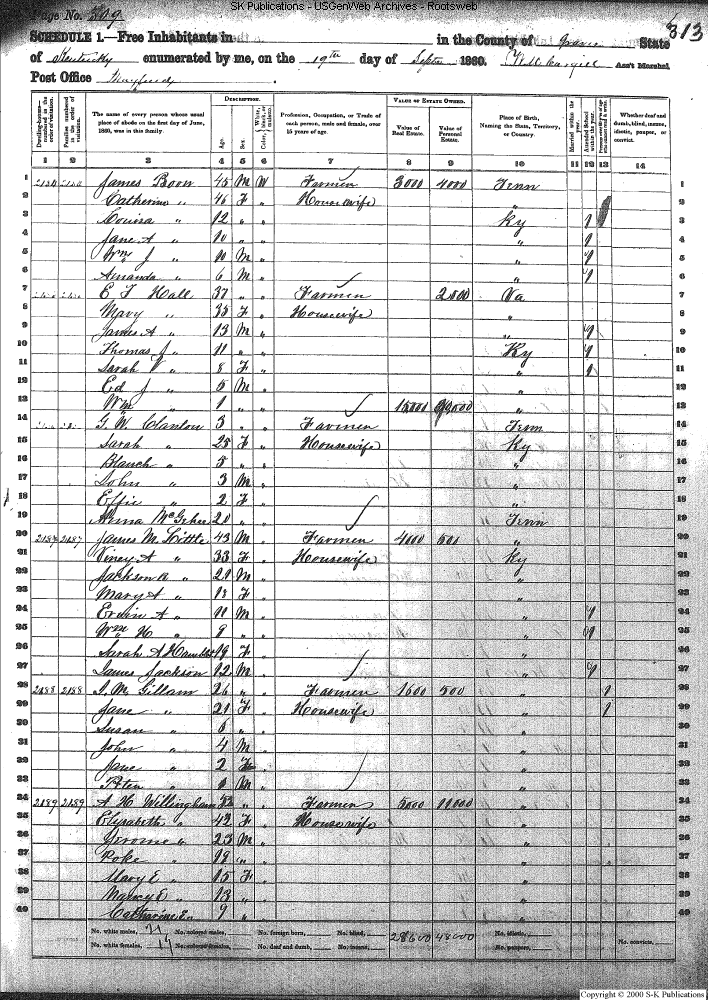 SK Publications - USGenWeb Archives - Rootsweb
Page No. 309
313
SCHEDULE 1.—Free Inhabitants in in the County of Graves State
of Kentucky enumerated by me, on the 19th day of Septr 1860. Ass't Marshal.
Post Office Mayfield
Dwelling-houses—numbered in the order of visitation.
Families numbered in the order of visitation.
The name of every person whose usual place of abode on the first day of June, 1860, was in this family.
DESCRIPTION.
Age. Sex. Color, White, black, or mulatto.
Profession, Occupation, or Trade of each person, male and female, over 15 years of age.
VALUE OF ESTATE OWNED.
Value of Real Estate. Value of Personal Estate.
Place of Birth, Naming the State, Territory, or Country.
Married within the year.
Attended School within the year.
Whether deaf and dumb, blind, insane, idiotic, pauper, or convict.
1 2 3 4 5 6 7 8 9 10 11 12 13 14
1 James Boon 45 M W Farmer 3000 4000 Tenn 1
2 Catherine " 46 F " Housewife " 2
3 Louisa " 12 " " Ky 1 3
4 Jane A " 10 " " " 1 4
5 Wm J " 10 M " " 1 5
6 Amanda " 6 M " " 1 6
7 E T Hall 37 " " Farmer 2500 Va 7
8 Mary " 35 F " Housewife " 8
9 James A " 13 M " " 1 9
10 Thomas J " 11 " " Ky 1 10
11 Sarah V " 8 F " " 1 11
12 Ed J " 5 M " " 12
13 Wm " 1 " " 15000 " 13
14 G. W. Clanton 3 " " Farmer Tenn 14
15 Sarah " 25 F " Housewife Ky 15
16 Blanch " 5 " " " 16
17 John " 3 M " " 17
18 Effie " 2 F " " 18
19 Anna McGehee 20 " " Tenn 19
20 2187 2187 James M. Little 43 M " Farmer 4000 500 " 20
21 Viney A " 33 F " Housewife Ky 21
22 Jackson R " 21 M " " 22
23 Mary A " 13 F " " 23
24 Erwin A " 11 M " " 1 24
25 Wm H " 8 " " " 1 25
26 Sarah A 19 F " " 26
27 James Jackson 12 M " " 1 27
28 2188 2188 J. M. Gillam 26 " " Farmer 1600 500 " 1 28
29 Jane " 21 F " Housewife " 1 29
30 Susan " " " " 30
31 John " 4 M " " 31
32 Jane " 2 F " " 32
33 Peter " 1 M " " 33
34 2189 2189 A H Willingham " " Farmer 5000 11000 " 34
35 Elizabeth " 42 F " Housewife " 35
36 Jerome " 23 M " " 36
37 Poke " 19 " " " 37
38 Mary E " 15 F " " 38
39 Nancy E " 13 " " " 39
40 Catharine E " 9 " " " 40
No. white males, 21 No. colored males, No. foreign born, No. blind, 28600 48000 No. idiotic,
No. white females, 19 No. colored females, No. deaf and dumb, No. insane, No. paupers, No. convicts,
Copyright © 2000 S-K Publications